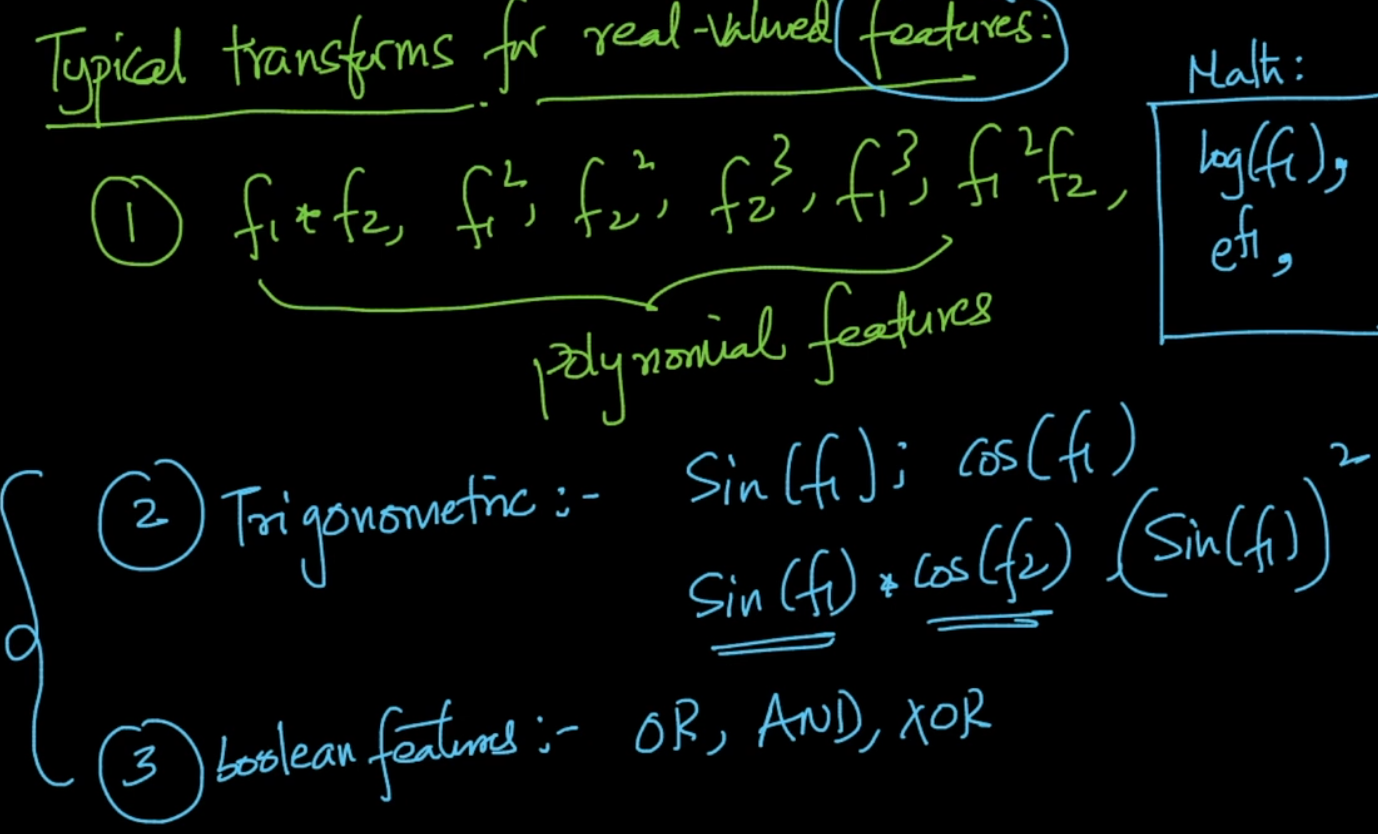 Typical transforms for real-valued features:
Math:
① f₁ * f₂, f₁², f₂², f₂³, f₁³, f₁²f₂,
log(f₁),
e^f₁,
polynomial features
② Trigonometric :- Sin(f₁); cos(f₁)
Sin(f₁) * cos(f₂) (Sin(f₁))²
③ boolean features :- OR, AND, XOR